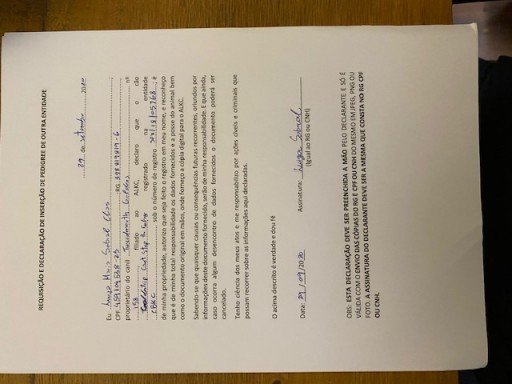 REQUISIÇÃO E DECLARAÇÃO DE INSERÇÃO DE PEDIGREE DE OUTRA ENTIDADE
29 de setembro 20
Eu
CPF RG
proprietário do canil nº
filiado ao ALKC, declaro que o cão
registrado na entidade
CBKC sob o número de registro e
de minha propriedade, autorizo que seja feito o registro em meu nome, e reconheço
que é de minha total responsabilidade os dados fornecidos e a posse do animal bem
como o documento original em mãos, onde forneço a cópia digital para o ALKC.
Sabendo-se que quaisquer causas ou consequências futuras recorrentes, oriundos por
informações deste documento fornecido, serão de minha responsabilidade. E que ainda,
caso ocorra algum desencontro de dados fornecidos o documento poderá ser
cancelado.
Tenho ciência dos meus atos e me responsabilizo por ações cíveis e criminais que
possam recorrer sobre as informações aqui declaradas.
O acima descrito é verdade e dou fé
Data: 29/09/20 Assinatura: Sobral
(Igual ao RG ou CNH)
OBS: ESTA DECLARAÇÃO DEVE SER PREENCHIDA A MÃO PELO DECLARANTE E SÓ É
VÁLIDA COM O ENVIO DAS CÓPIAS DO RG E CPF OU CNH DO MESMO EM JPEG, PNG OU
FOTO. A ASSINATURA DO DECLARANTE DEVE SER A MESMA QUE CONSTA NO RG CPF
OU CNH.